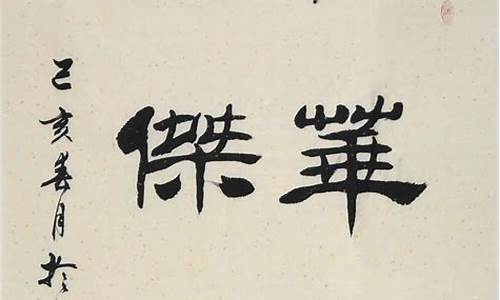 華傑
己亥春月於